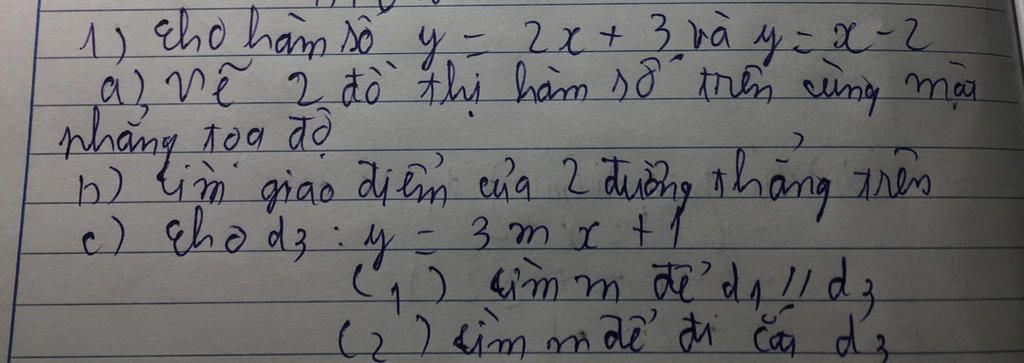 1) Cho hàm số y = 2x + 3 và y = x - 2
a) Vẽ 2 đồ thị hàm số trên cùng mặt
phẳng tọa độ
b) tìm giao điểm của 2 đường thẳng trên
c) Cho d3 : y = 3mx + 1
(1) tìm m để d1 // d3
(2) tìm m để di cắt d3